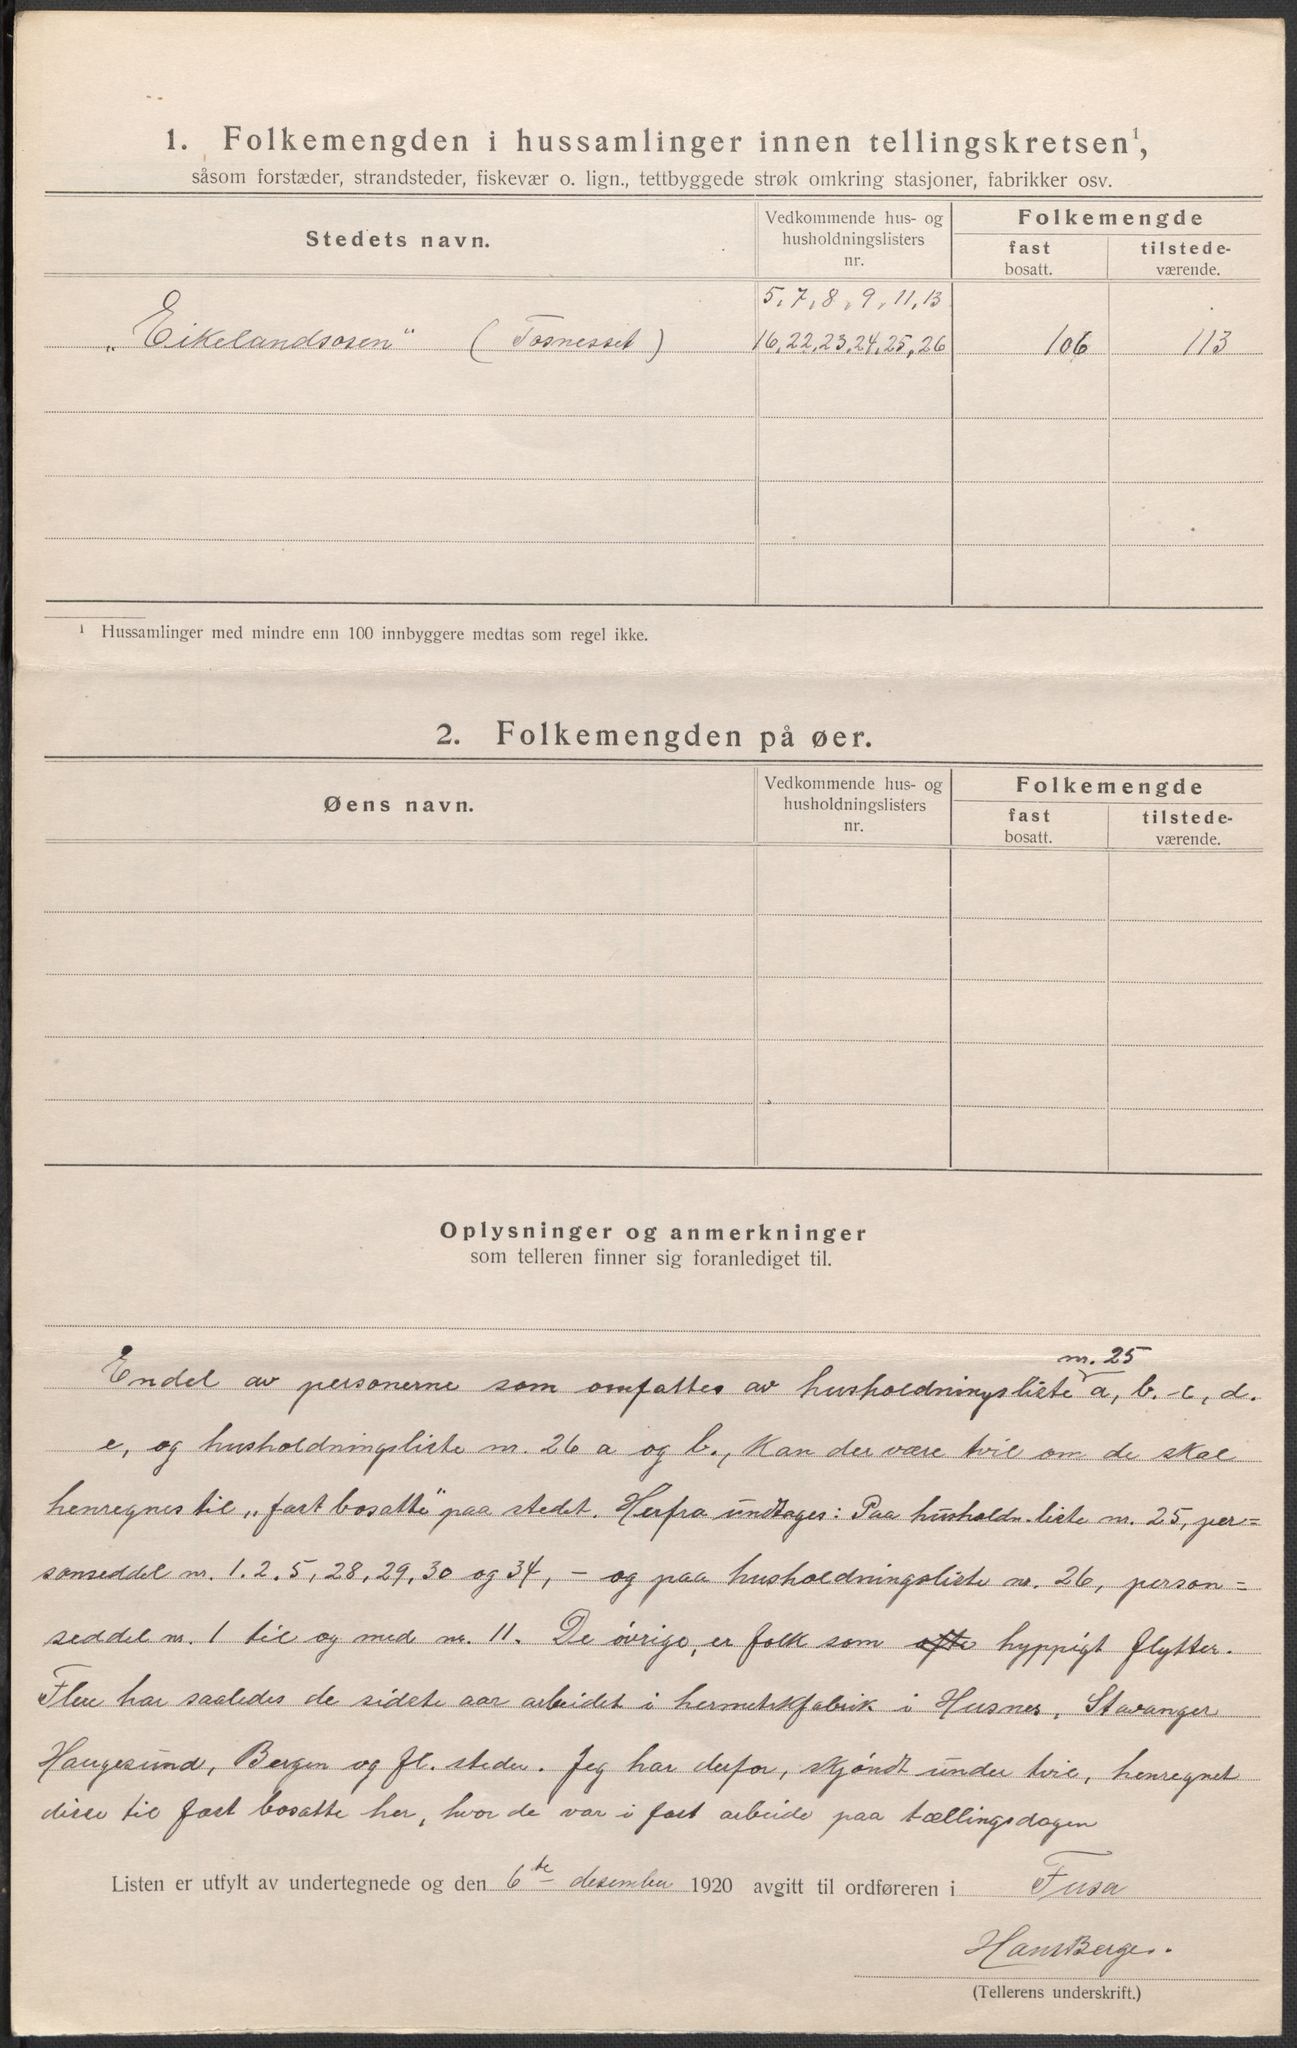 1. Folkemengden i hussamlinger innen tellingskretsen¹,
såsom forstæder, strandsteder, fiskevær o. lign., tettbyggede strøk omkring stasjoner, fabrikker osv.
Stedets navn.
Vedkommende hus- og
husholdningslisters
nr.
Folkemengde
fast
bosatt.
tilstede-
værende.
5, 7, 8, 9, 11, 13
„Eikelandsosen“ (Tosnesset) 16, 22, 23, 24, 25, 26 106 113
¹ Hussamlinger med mindre enn 100 innbyggere medtas som regel ikke.
2. Folkemengden på øer.
Øens navn.
Vedkommende hus- og
husholdningslisters
nr.
Folkemengde
fast
bosatt.
tilstede-
værende.
Oplysninger og anmerkninger
som telleren finner sig foranlediget til.
nr. 25
Endel av personerne som omfattes av husholdningsliste a, b. c, d.
e, og husholdningsliste nr. 26 a og b., kan der være tvil om de skal
henregnes til „fast bosatte“ paa stedet. Herfra undtages: Paa husholdn.liste nr. 25, per=
sonseddel nr. 1. 2. 5, 28, 29, 30 og 34, – og paa husholdningsliste nr. 26, person=
seddel nr. 1 til og med nr. 11. De øvrige, er folk som ofte hyppigt flytter.
Flere har saaledes de sidste aar arbeidet i hermetikfabrik i Husnes, Stavanger
Haugesund, Bergen og fl. steder. Jeg har derfor, skjøndt under tvil, henregnet
disse til fast bosatte her, hvor de var i fast arbeide paa tællingsdagen
Listen er utfylt av undertegnede og den 6te desember 1920 avgitt til ordføreren i Fusa
Hans Berge.
(Tellerens underskrift.)